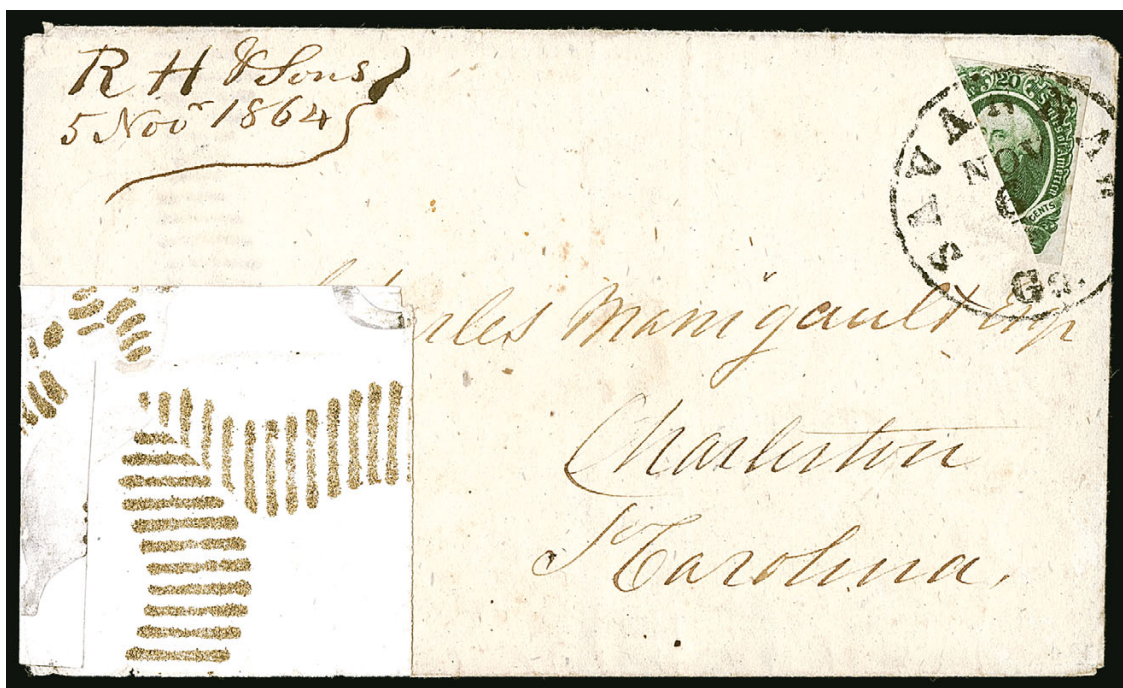 R H & Sons
5 Nov 1864
20
CENTS
SAVANNAH
NOV
Ga.
rles Manigault Esqr
Charleston
S Carolina.